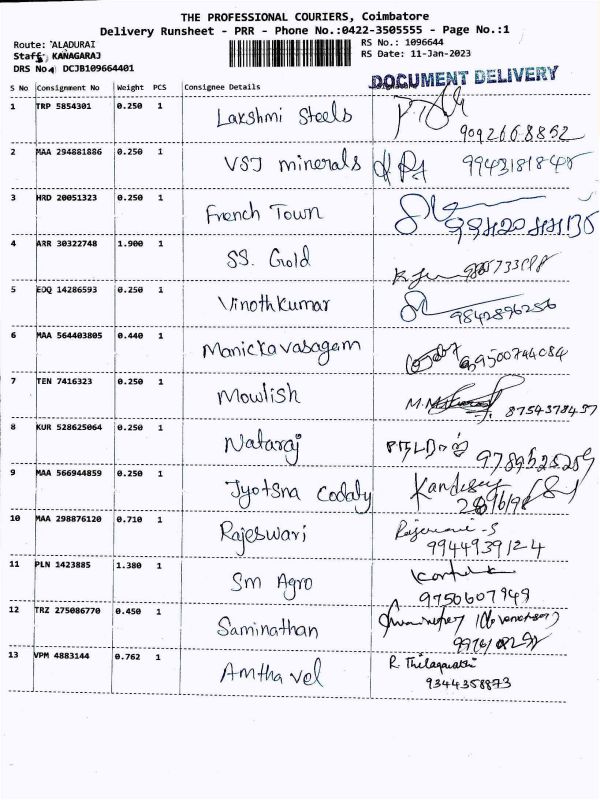 THE PROFESSIONAL COURIERS, Coimbatore
Delivery Runsheet - PRR - Phone No.:0422-3505555 - Page No.:1
Route: ALADURAI
Staff: KANAGARAJ
DRS No. DCJB109664401
RS No.: 1096644
RS Date: 11-Jan-2023
DOCUMENT DELIVERY
S No Consignment No Weight PCS Consignee Details
1 TRP 5854301 0.250 1 Lakshmi Steels
9092668852
2 MAA 294881886 0.250 1 VSJ minerals
3 HRD 20051323 0.250 1 French Town
4 ARR 30322748 1.900 1 SS. Gold
5 EDQ 14286593 0.250 1 Vinothkumar
9842896256
6 MAA 564403805 0.440 1 Manickavasagam
9500744084
7 TEN 7416323 0.250 1 Mowlish
8754378437
8 KUR 528625064 0.250 1 Nataraj
நடராஜ்
9789525259
9 MAA 566944859 0.250 1 Jyotsna Codaty
10 MAA 298876120 0.710 1 Rajeswari
Rajeswari-S
9944939124
11 PLN 1423885 1.380 1 Sm Agro
9750607949
12 TRZ 275086770 0.450 1 Saminathan
13 VPM 4883144 0.762 1 Amthavel
R. Thilagavathi
9344358873